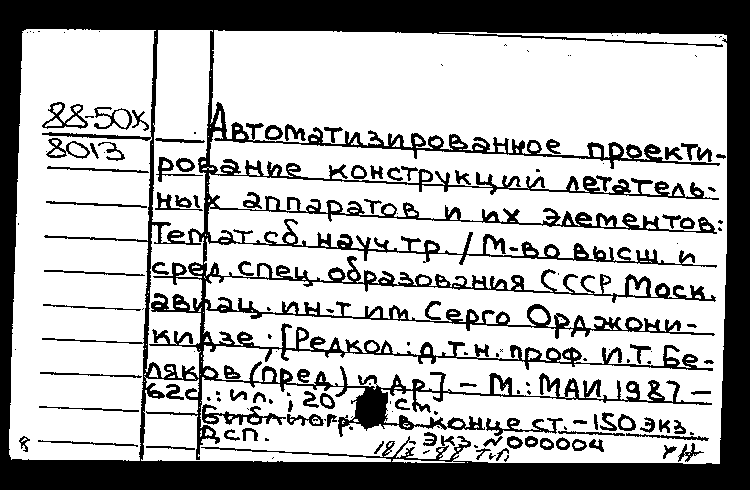 88-50к
8013
Автоматизированное проекти-
рование конструкций летатель-
ных аппаратов и их элементов:
Темат. сб. науч. тр. / М-во высш. и
сред. спец. образования СССР, Моск.
авиац. ин-т им. Серго Орджони-
кидзе; [Редкол.: д.т.н. проф. И.Т. Бе-
ляков (пред.) и др]. – М.: МАИ, 1987 –
62с.: ил.; 20 см.
Библиогр. в конце ст. – 150 экз.
Дсп. экз. №000004
8